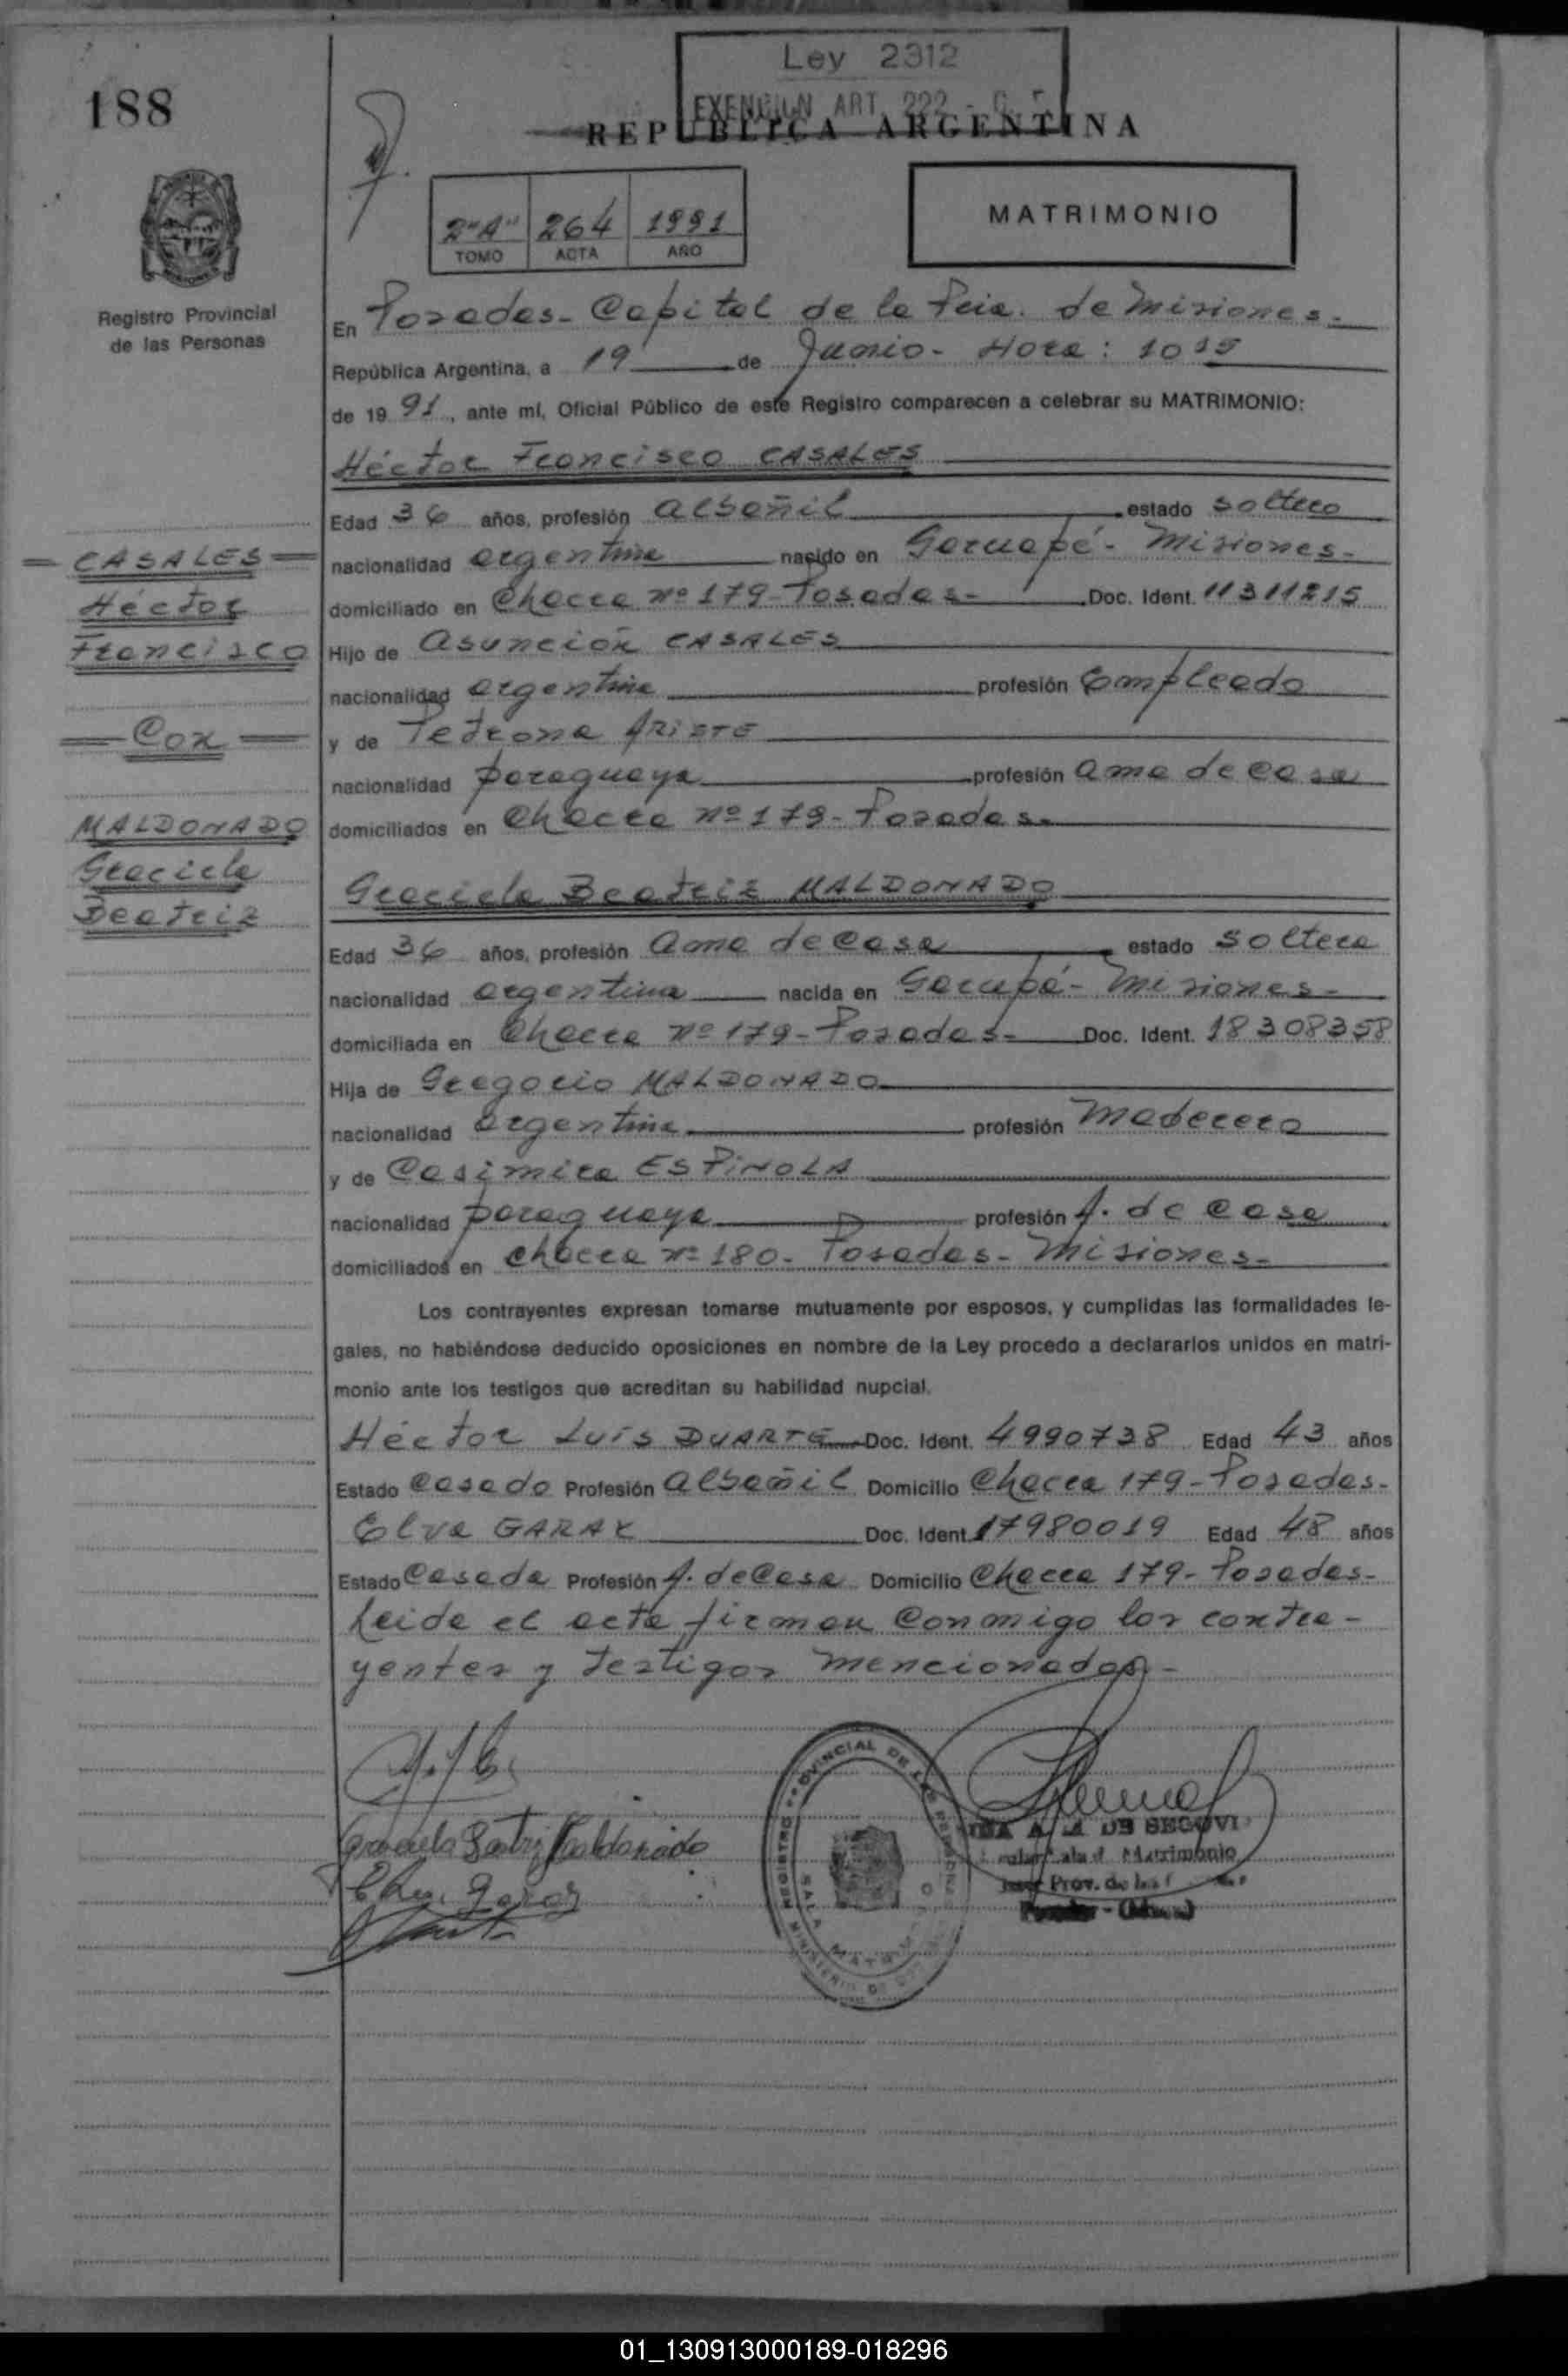 188
Ley 2312
EXENCION ART. 222 -
REPUBLICA ARGENTINA
2"A" 264 1991
TOMO ACTA AÑO
MATRIMONIO
Registro Provincial
de las Personas
En Posadas - Capital de la Pcia. de Misiones.
República Argentina, a 19 de Junio - Hora: 10 15
de 19 91, ante mí, Oficial Público de este Registro comparecen a celebrar su MATRIMONIO:
Héctor Francisco CASALES
Edad 36 años, profesión albañil estado soltero
nacionalidad argentina nacido en Garuapé - Misiones -
domiciliado en Chacra nº 179 - Posadas - Doc. Ident. 11311215
Hijo de Asunción CASALES
nacionalidad argentina profesión Empleado
y de Petrona ARISTE
nacionalidad paraguaya profesión ama de casa
domiciliados en Chacra nº 179 - Posadas -
= CASALES =
Héctor
Francisco
= Con =
MALDONADO
Graciela
Beatriz
Graciela Beatriz MALDONADO
Edad 36 años, profesión ama de casa estado soltera
nacionalidad argentina nacida en Garupá - Misiones -
domiciliada en Chacra nº 179 - Posadas - Doc. Ident. 18308358
Hija de Gregorio MALDONADO
nacionalidad argentina profesión maderero
y de Casimira ESPINOLA
nacionalidad paraguaya profesión A. de casa
domiciliados en chacra nº 180 - Posadas - Misiones -
Los contrayentes expresan tomarse mutuamente por esposos, y cumplidas las formalidades le-
gales, no habiéndose deducido oposiciones en nombre de la Ley procedo a declararlos unidos en matri-
monio ante los testigos que acreditan su habilidad nupcial.
Héctor Luis DUARTE Doc. Ident. 4990738 Edad 43 años
Estado Casado Profesión albañil Domicilio Chacra 179 - Posadas -
Elva GARAY Doc. Ident. 17980019 Edad 48 años
Estado Casada Profesión A. de Casa Domicilio Chacra 179 - Posadas -
Leida el acta firman conmigo los contra-
yentes y testigos mencionados -
Graciela Beatriz Maldonado
Elva Garay
REGISTRO PROVINCIAL DE LAS PERSONAS
SALA MATRIMONIO
MINISTERIO DE
DE SEGOVI
Matrimonio
Prov. de las
01_130913000189-018296